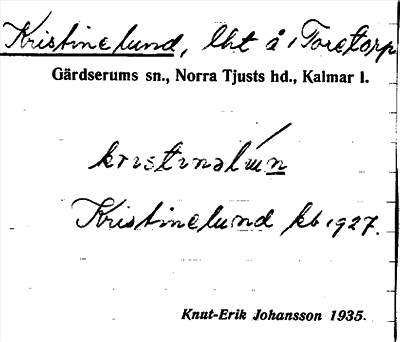 Kristinelund, lht å Toretorp
Gärdserums sn., Norra Tjusts hd., Kalmar l.
kristinəlɯn
Kristinelund kb 1927.
Knut-Erik Johansson 1935.